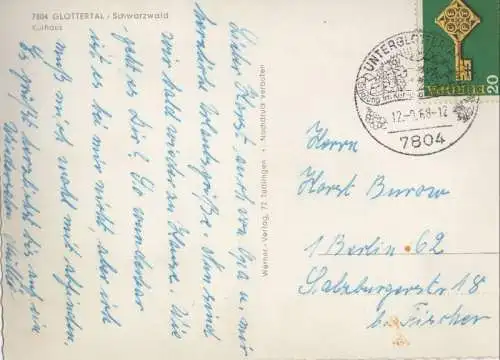 7804 GLOTTERTAL · Schwarzwald
Kurhaus
Lieber Horst, auch von Opa u. mir
herzlichste Urlaubsgrüße. Nun sind
wir bald wieder zu Hause. Wie
geht es Dir? So wunderbar
ist es bei mir nicht, aber ich
muß mich wohl mit abfinden.
Es grüßt herzlichst bis auf ein
Wiedersehen
Werner-Verlag, 72 Tuttlingen · Nachdruck verboten
UNTERGLOTTERTAL
12.-9.68-12
7804
EUROPA
20
Herrn
Horst Burow
1 Berlin 62
Salzburgerstr 18
b. Fischer